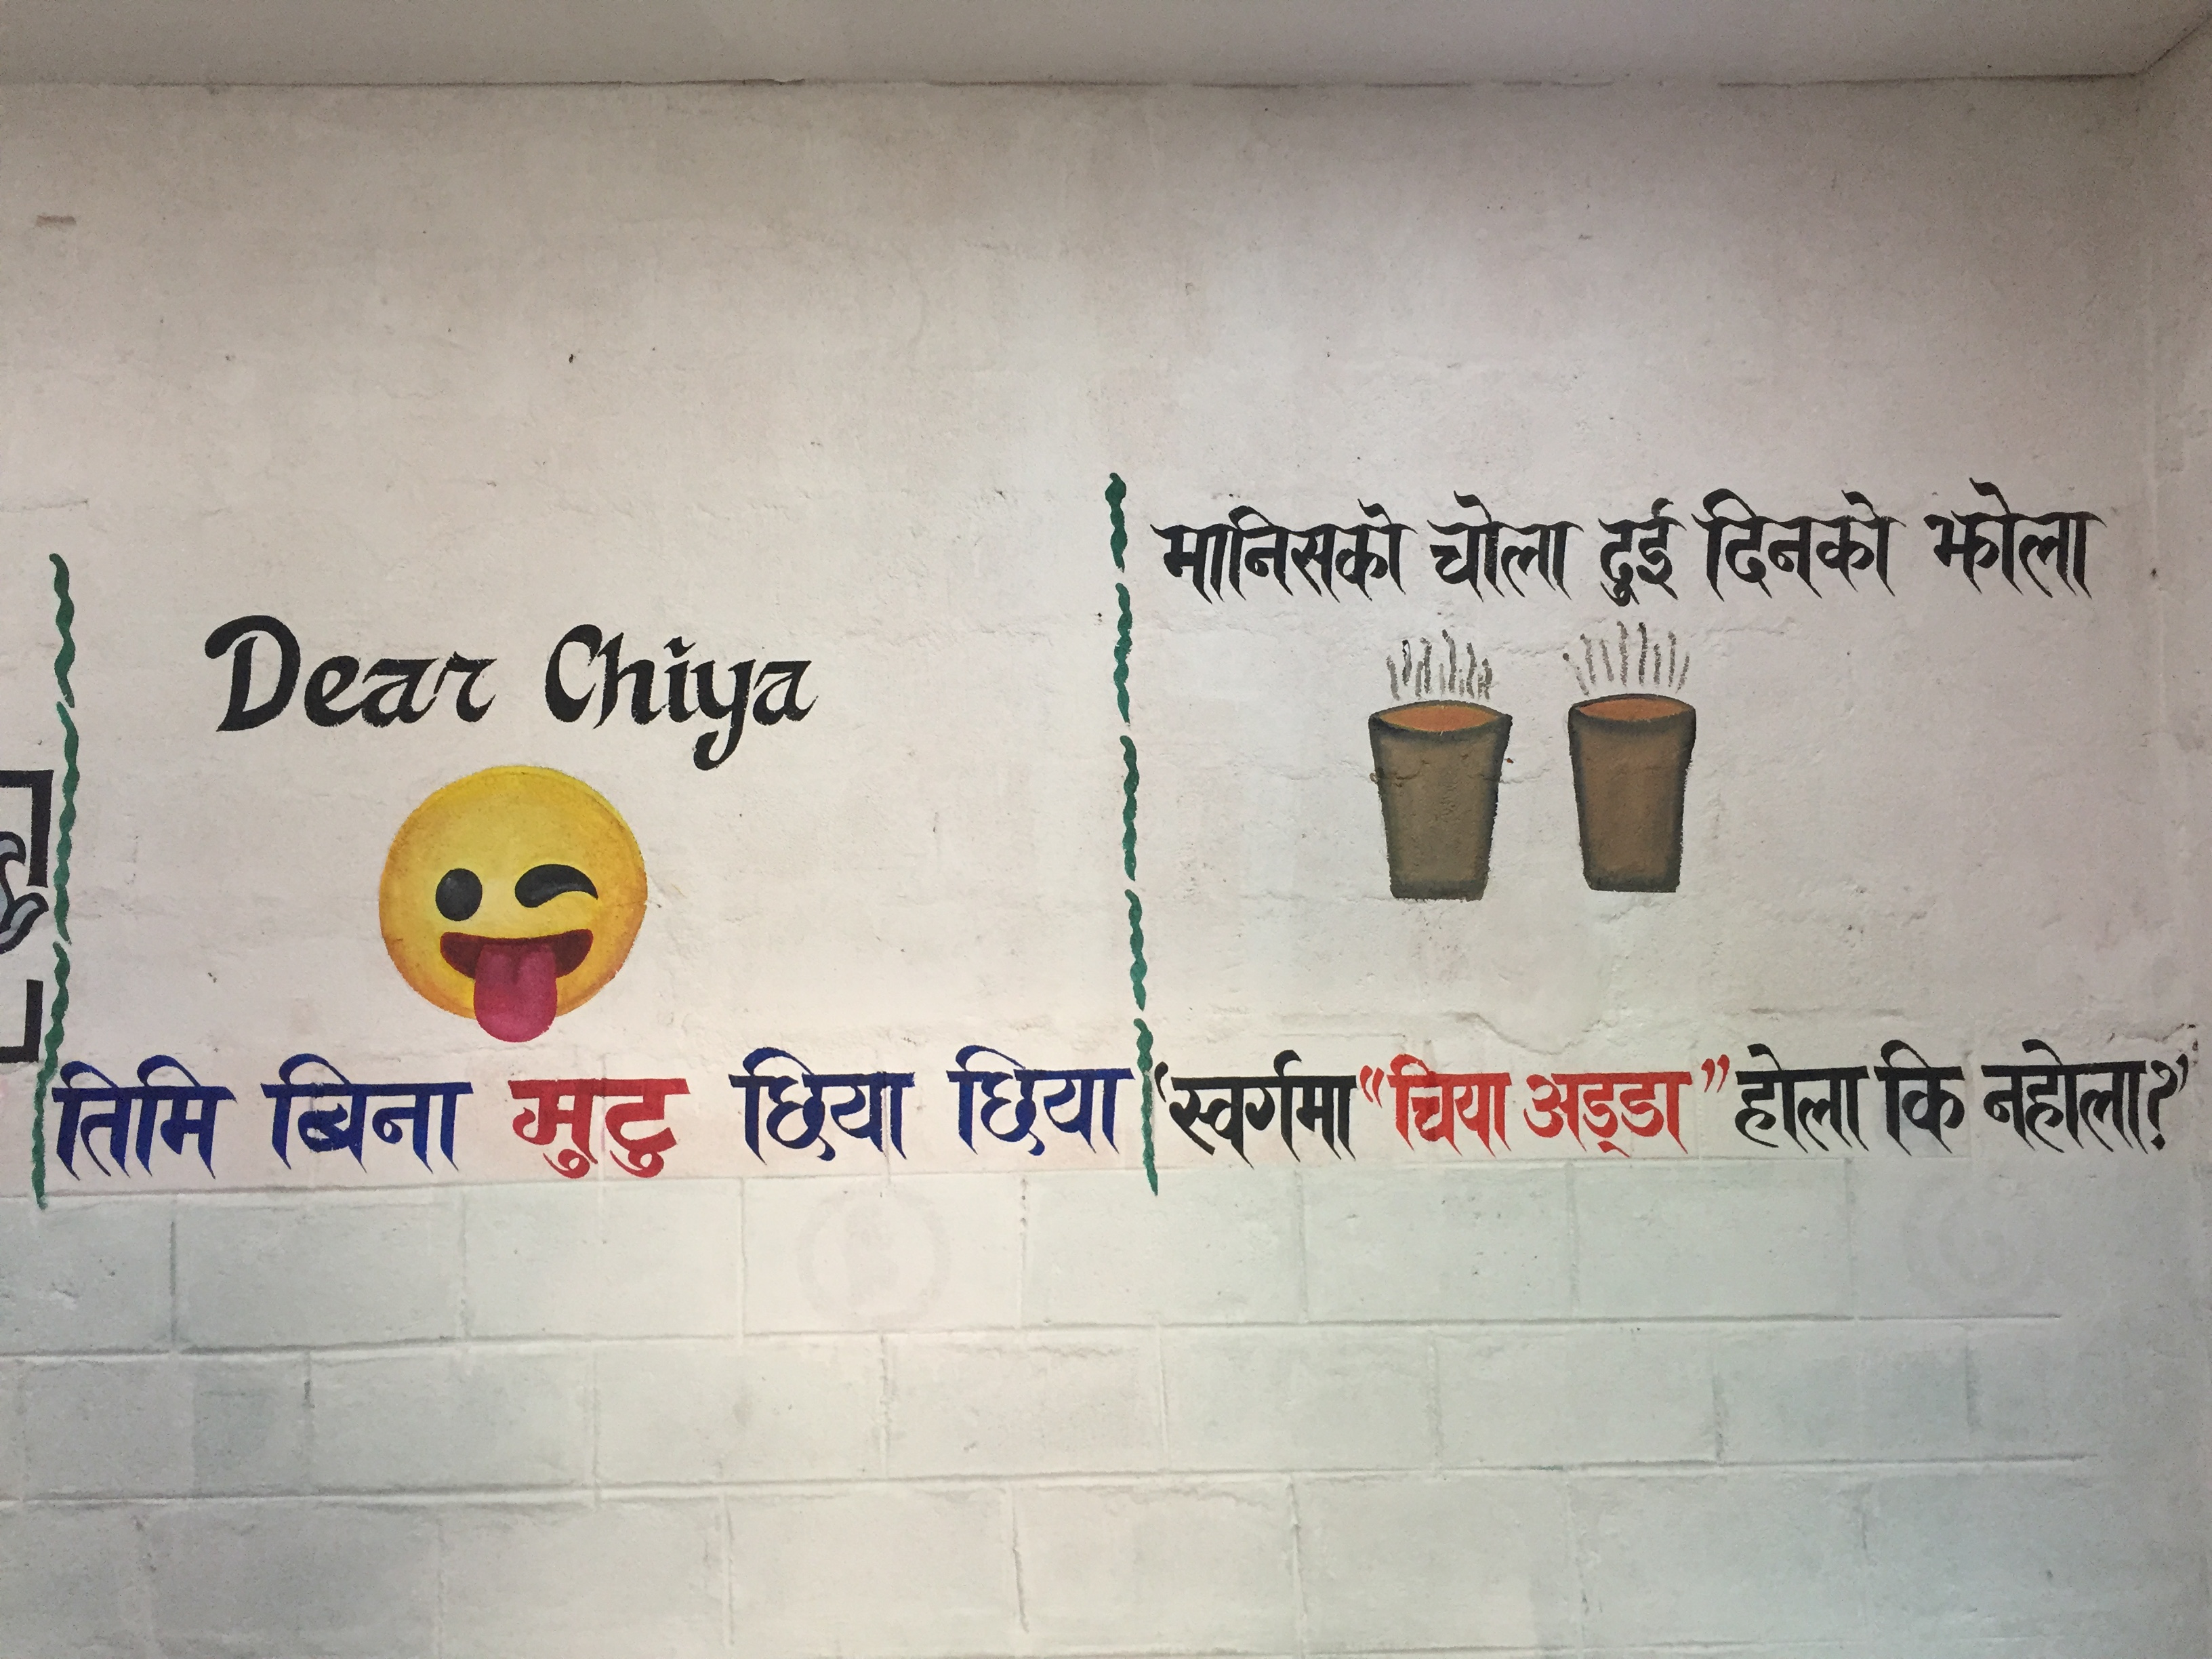 Dear Chiya
तिमि बिना मुटु छिया छिया
मानिसको चोला दुई दिनको झोला
‘स्वर्गमा “चिया अड्डा” होला कि नहोला?’